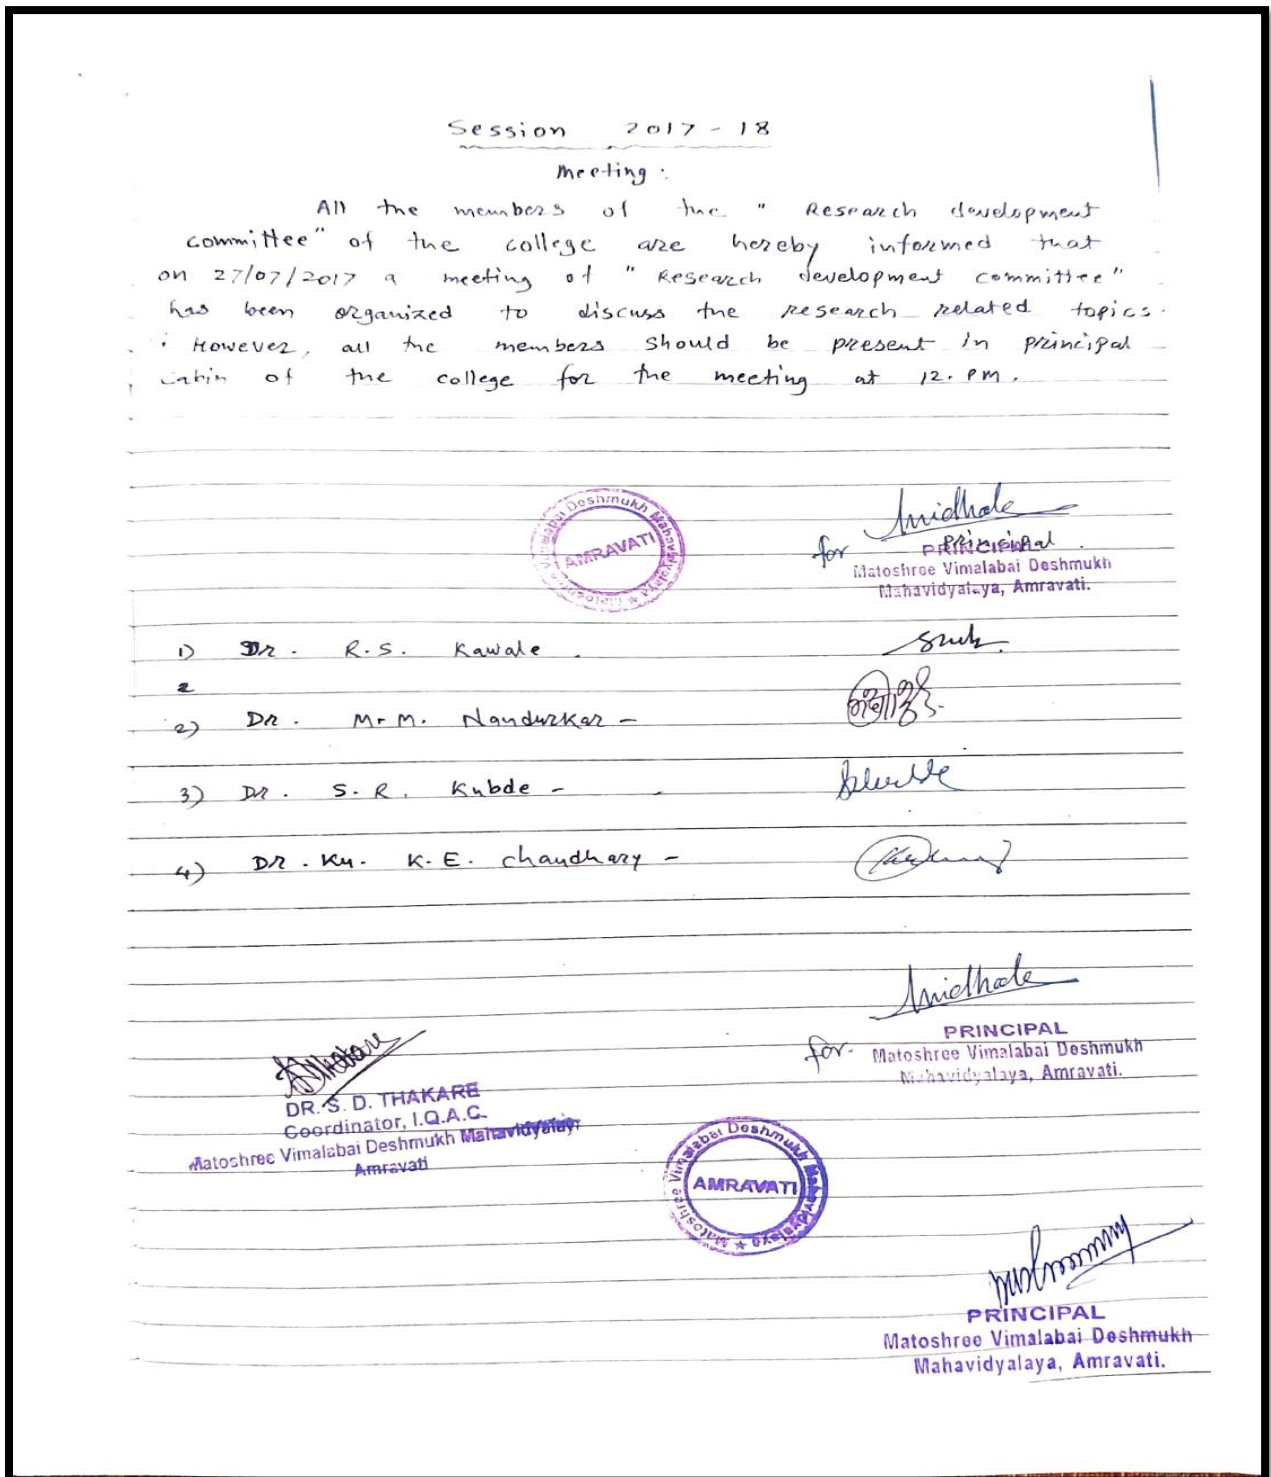 Session 2017-18
Meeting :
All the members of the " Research development
committee" of the college are hereby informed that
on 27/07/2017 a meeting of " Research development committee"
has been organized to discuss the research related topics.
However, all the members should be present in principal
cabin of the college for the meeting at 12. PM.
Matoshree Vimalabai Deshmukh Mahavidyalaya ★
AMRAVATI
for Principal.
PRINCIPAL
Matoshree Vimalabai Deshmukh
Mahavidyalaya, Amravati.
1) Dr. R.S. Kawale.
2
2) Dr. M.M. Nandurkar -
3) Dr. S.R. Kubde -
4) Dr. Ku. K.E. chaudhary -
for. PRINCIPAL
Matoshree Vimalabai Deshmukh
Mahavidyalaya, Amravati.
DR. S. D. THAKARE
Coordinator, I.Q.A.C.
Matoshree Vimalabai Deshmukh Mahavidyalay
Amravati
Matoshree Vimalabai Deshmukh Mahavidyalaya ★
AMRAVATI
PRINCIPAL
Matoshree Vimalabai Deshmukh
Mahavidyalaya, Amravati.